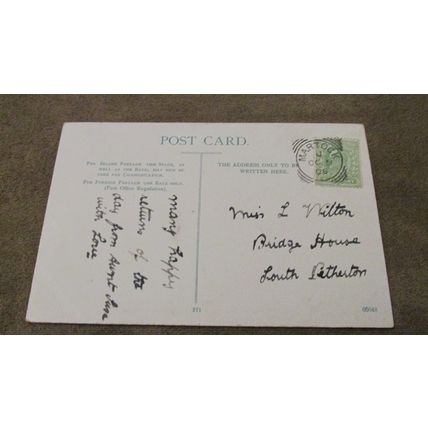 POST CARD.
FOR INLAND POSTAGE THIS SPACE, AS
WELL AS THE BACK, MAY NOW BE
USED FOR COMMUNICATION.
FOR FOREIGN POSTAGE THE BACK ONLY.
(Post Office Regulation).
THE ADDRESS ONLY TO BE
WRITTEN HERE.
MARTOCK
many happy
returns of the
day from Aunt
with Love
Miss L Wilton
Bridge House
South Petherton
371